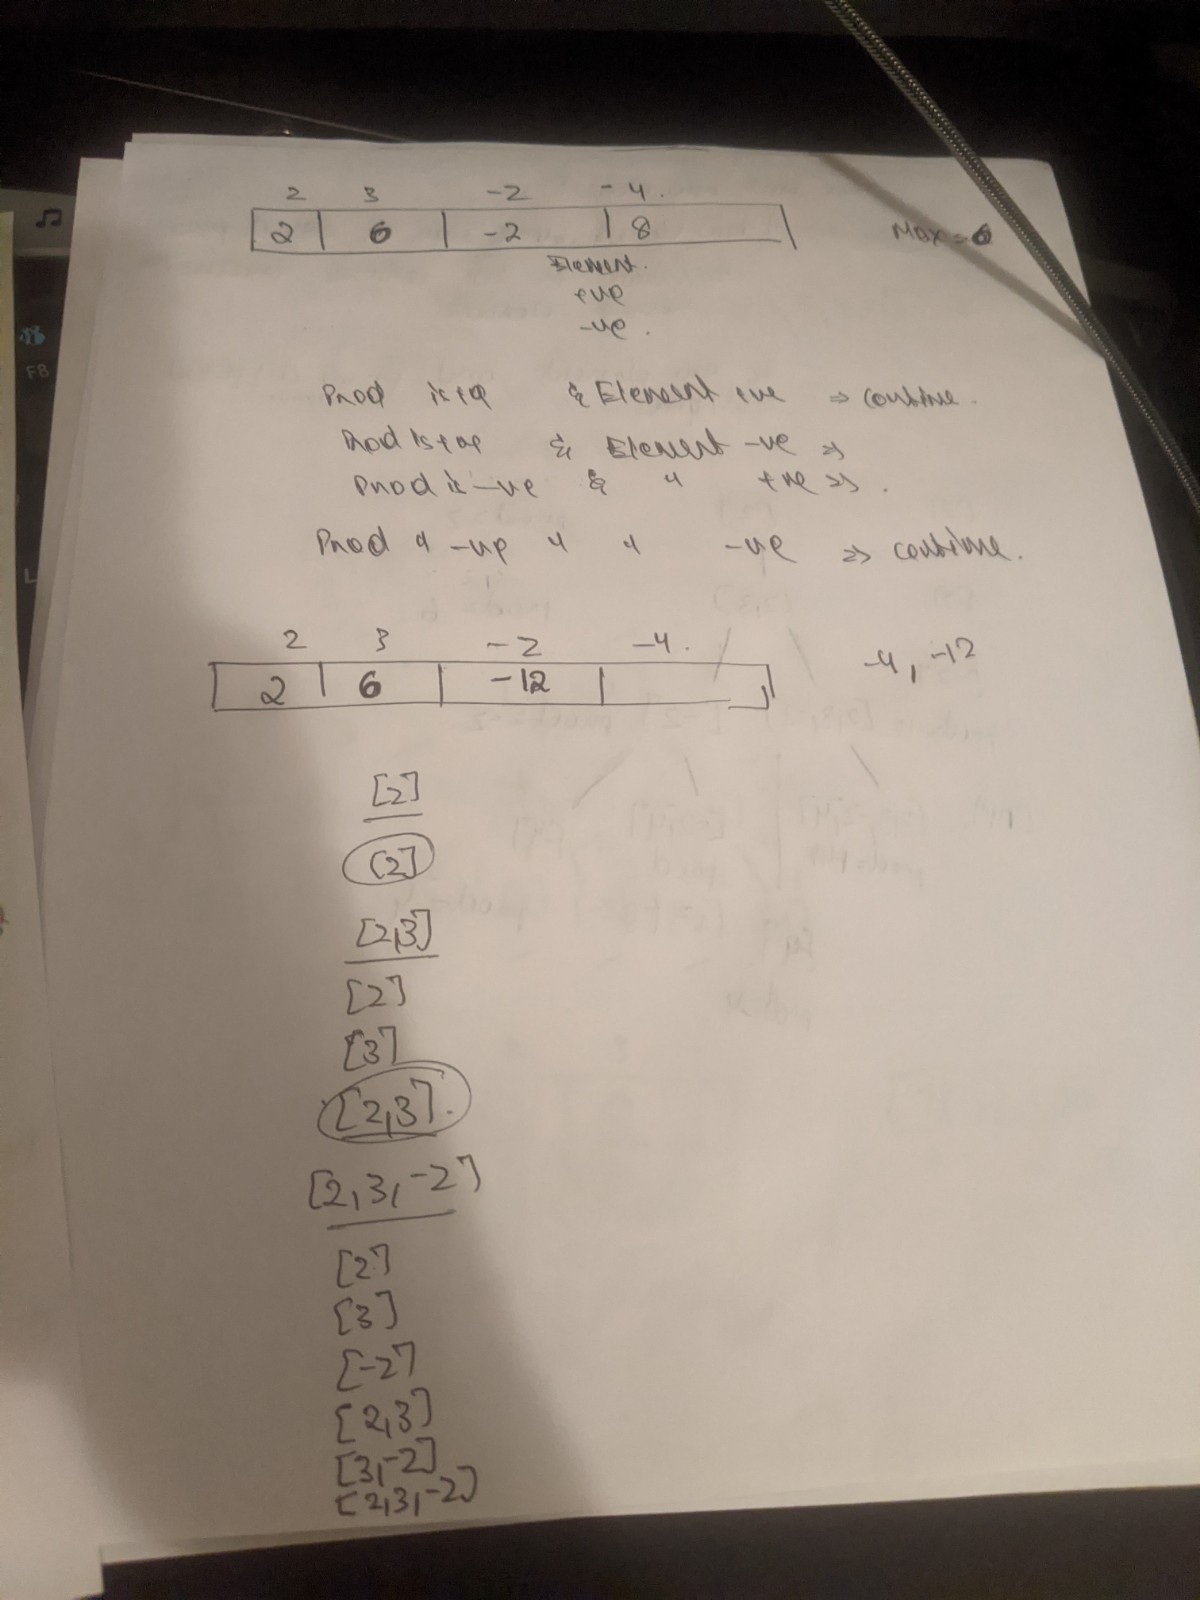 2 3 -2 -4.
2 6 -2 8 Max = 6
Element.
+ve
-ve.
Prod is +e & Element +ve => continue.
Prod is +ve & Element -ve =>
Prod is -ve & " +ve =>.
Prod " -ve " " -ve => continue.
2 3 -2 -4.
2 6 -12 -4, -12
[2]
[2]
[2,3]
[2]
[3]
[2,3].
[2,3,-2]
[2]
[3]
[-2]
[2,3]
[3,-2]
[2,3,-2]
F8
L